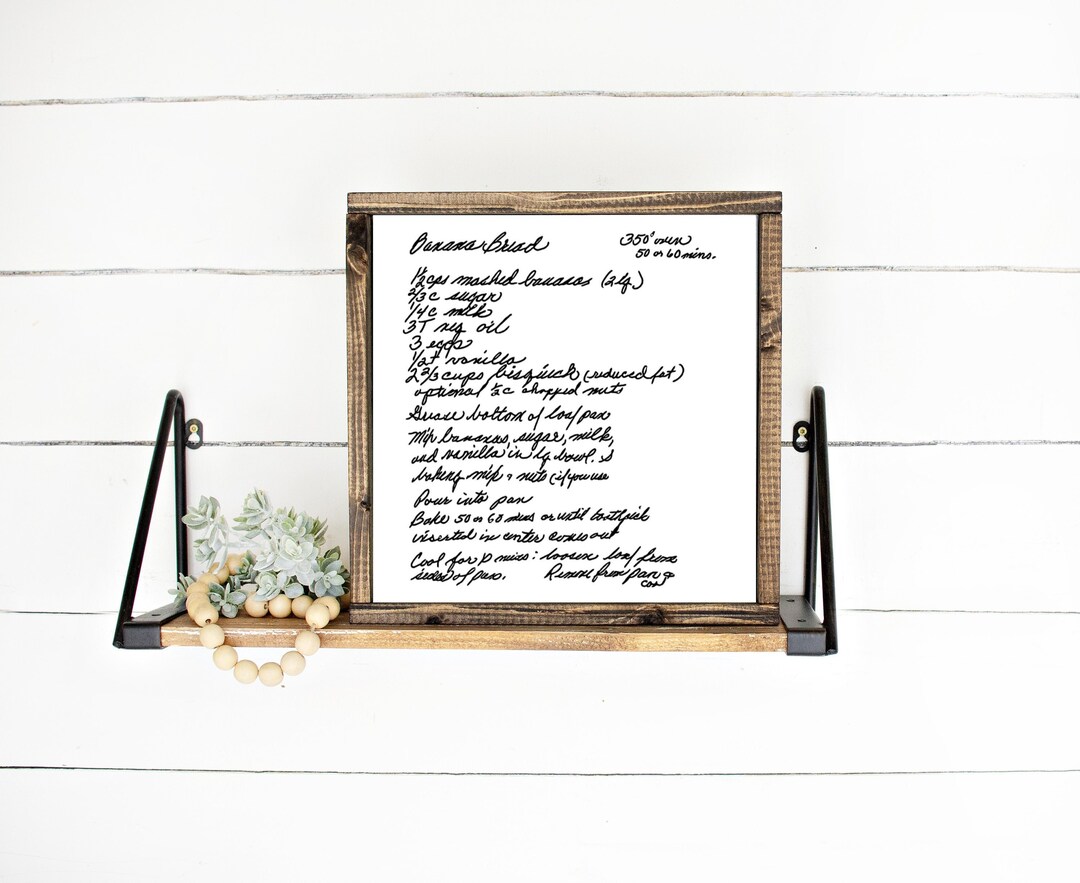 Banana Bread
350° oven
50 or 60 mins.
1½ cps mashed bananas (2 lg.)
2/3 c sugar
1/4 c milk
3T veg oil
3 eggs
1/2 t vanilla
2 2/3 cups bisquick (reduced fat)
optional ½ c chopped nuts
Grease bottom of loaf pan
Mix bananas, sugar, milk,
and vanilla in lg bowl.
baking mix & nuts (if you use
Pour into pan
Bake 50 or 60 mins or until toothpick
inserted in center comes out
Cool for 10 mins: loosen loaf from
sides of pan. Remove from pan &